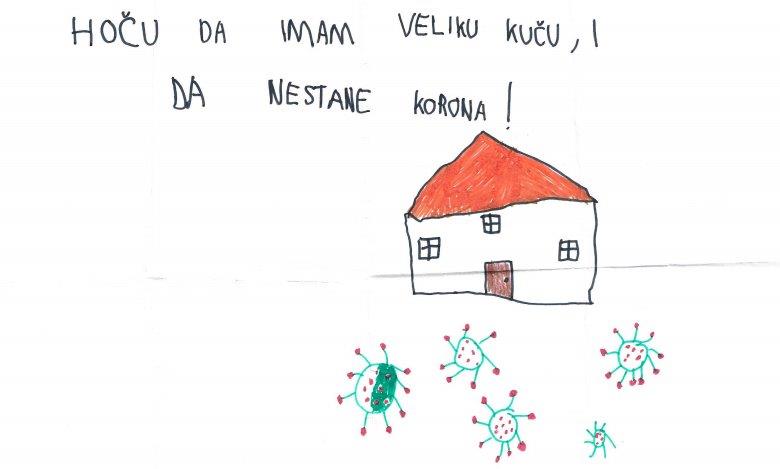 HOČU DA IMAM VELIKU KUČU, I
DA NESTANE KORONA!